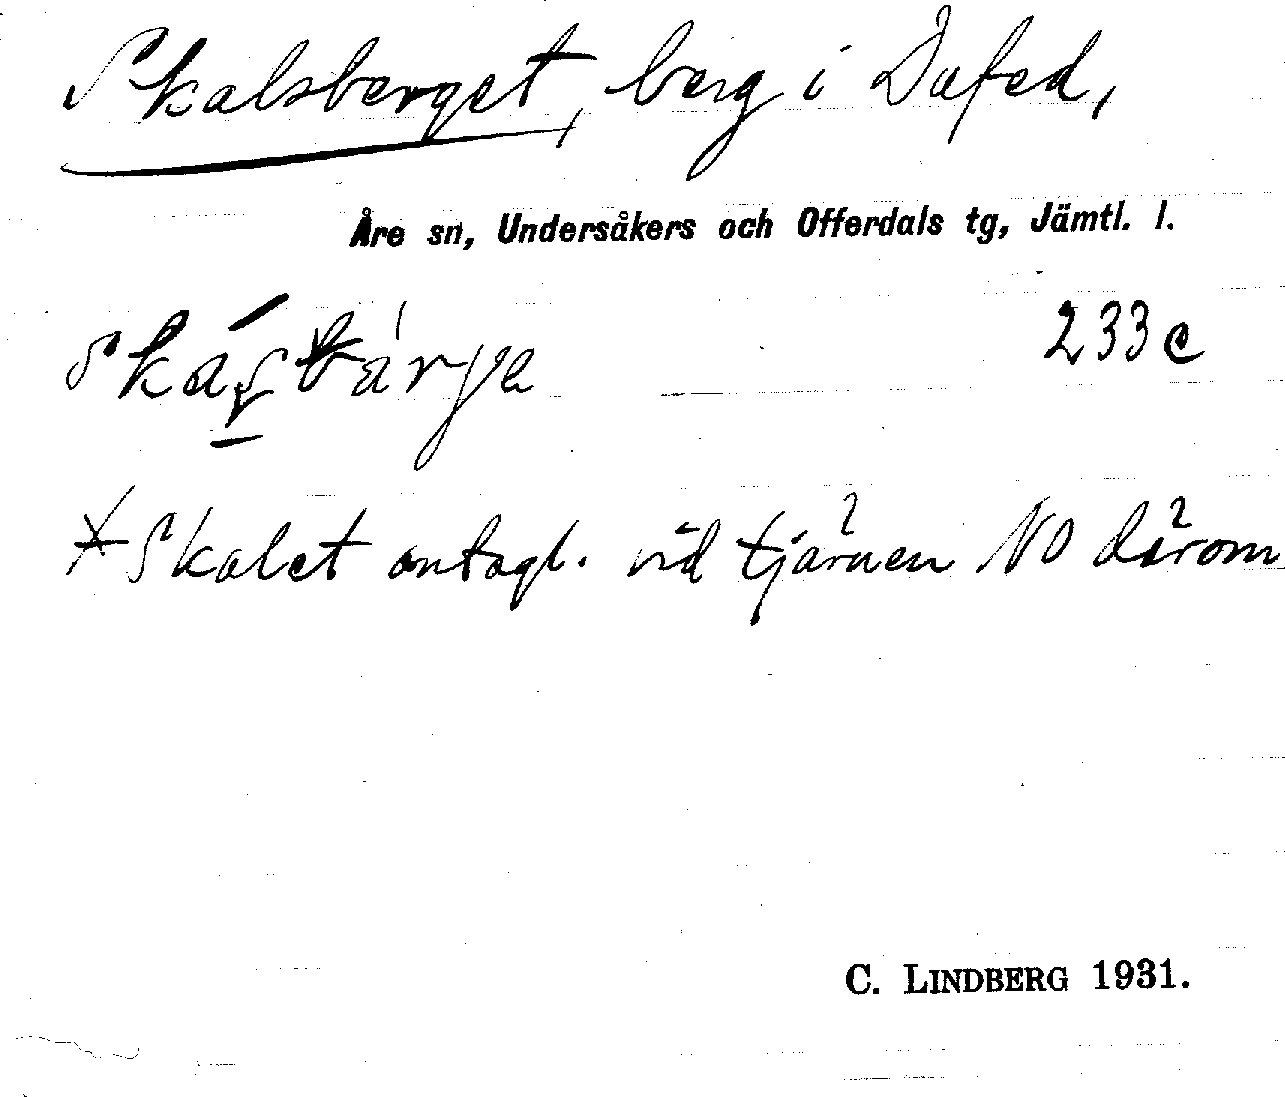 Skalsberget, berg i Dufed,
Åre sn, Undersåkers och Offerdals tg, Jämtl. l.
233 c
*Skalet antagl. vid tjärnen NO därom
C. LINDBERG 1931.